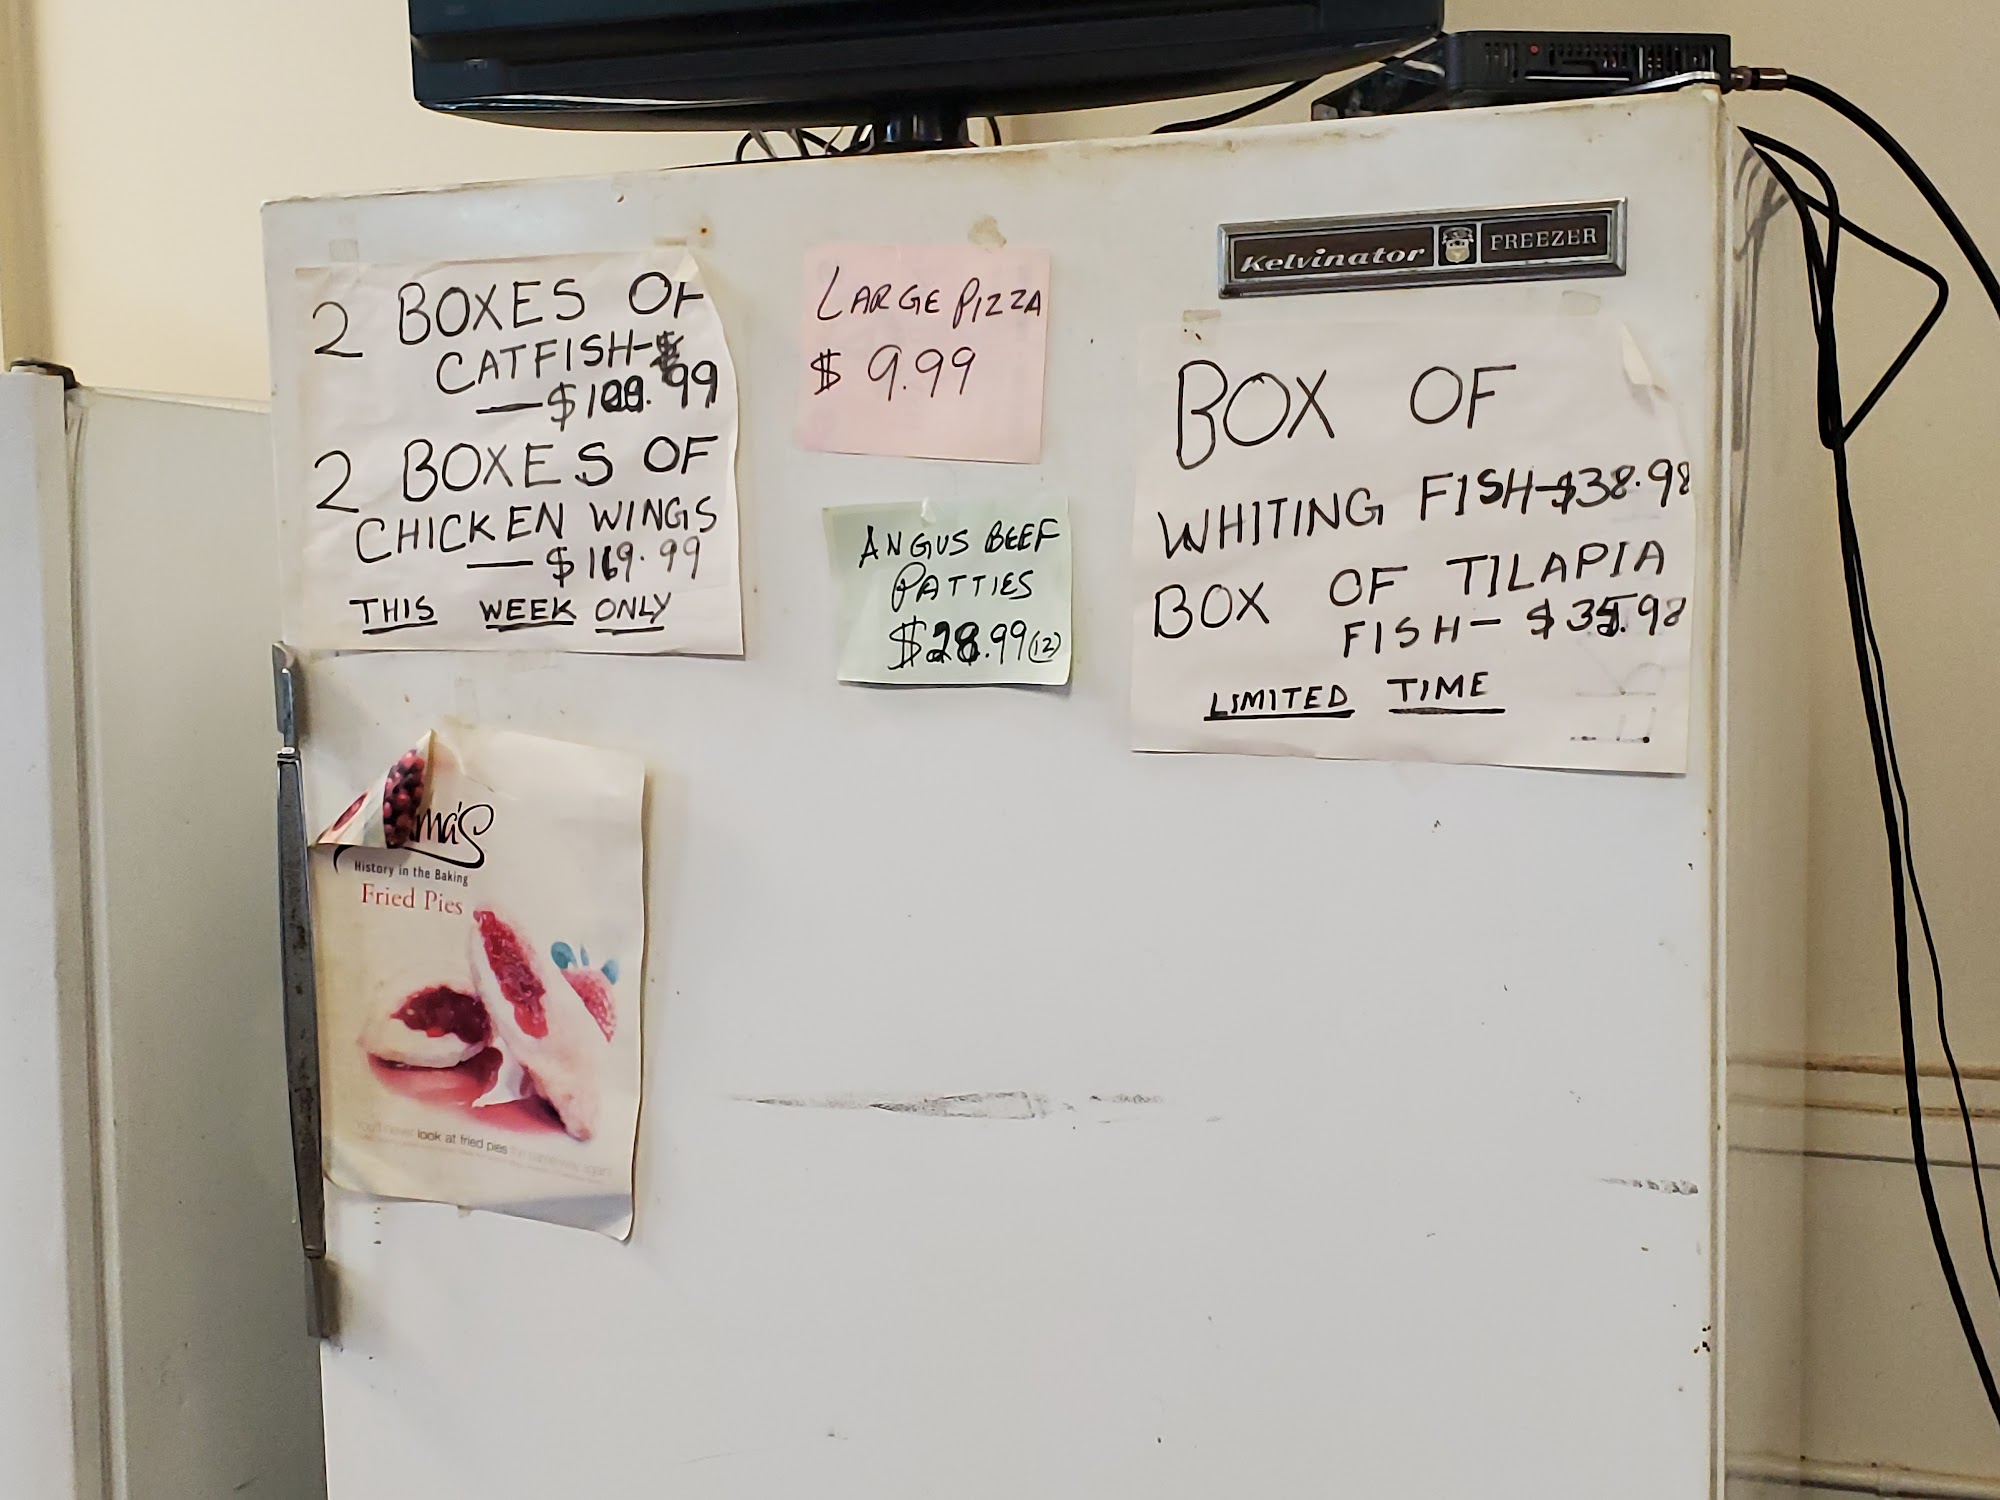 2 BOXES OF
CATFISH-$
— $109.99
2 BOXES OF
CHICKEN WINGS
— $169.99
THIS WEEK ONLY
LARGE PIZZA
$ 9.99
ANGUS BEEF
PATTIES
$28.99 (12)
Kelvinator FREEZER
BOX OF
WHITING FISH-$38.98
BOX OF TILAPIA
FISH- $35.98
LIMITED TIME
History in the Baking
Fried Pies
You'll never look at fried pies the same way again